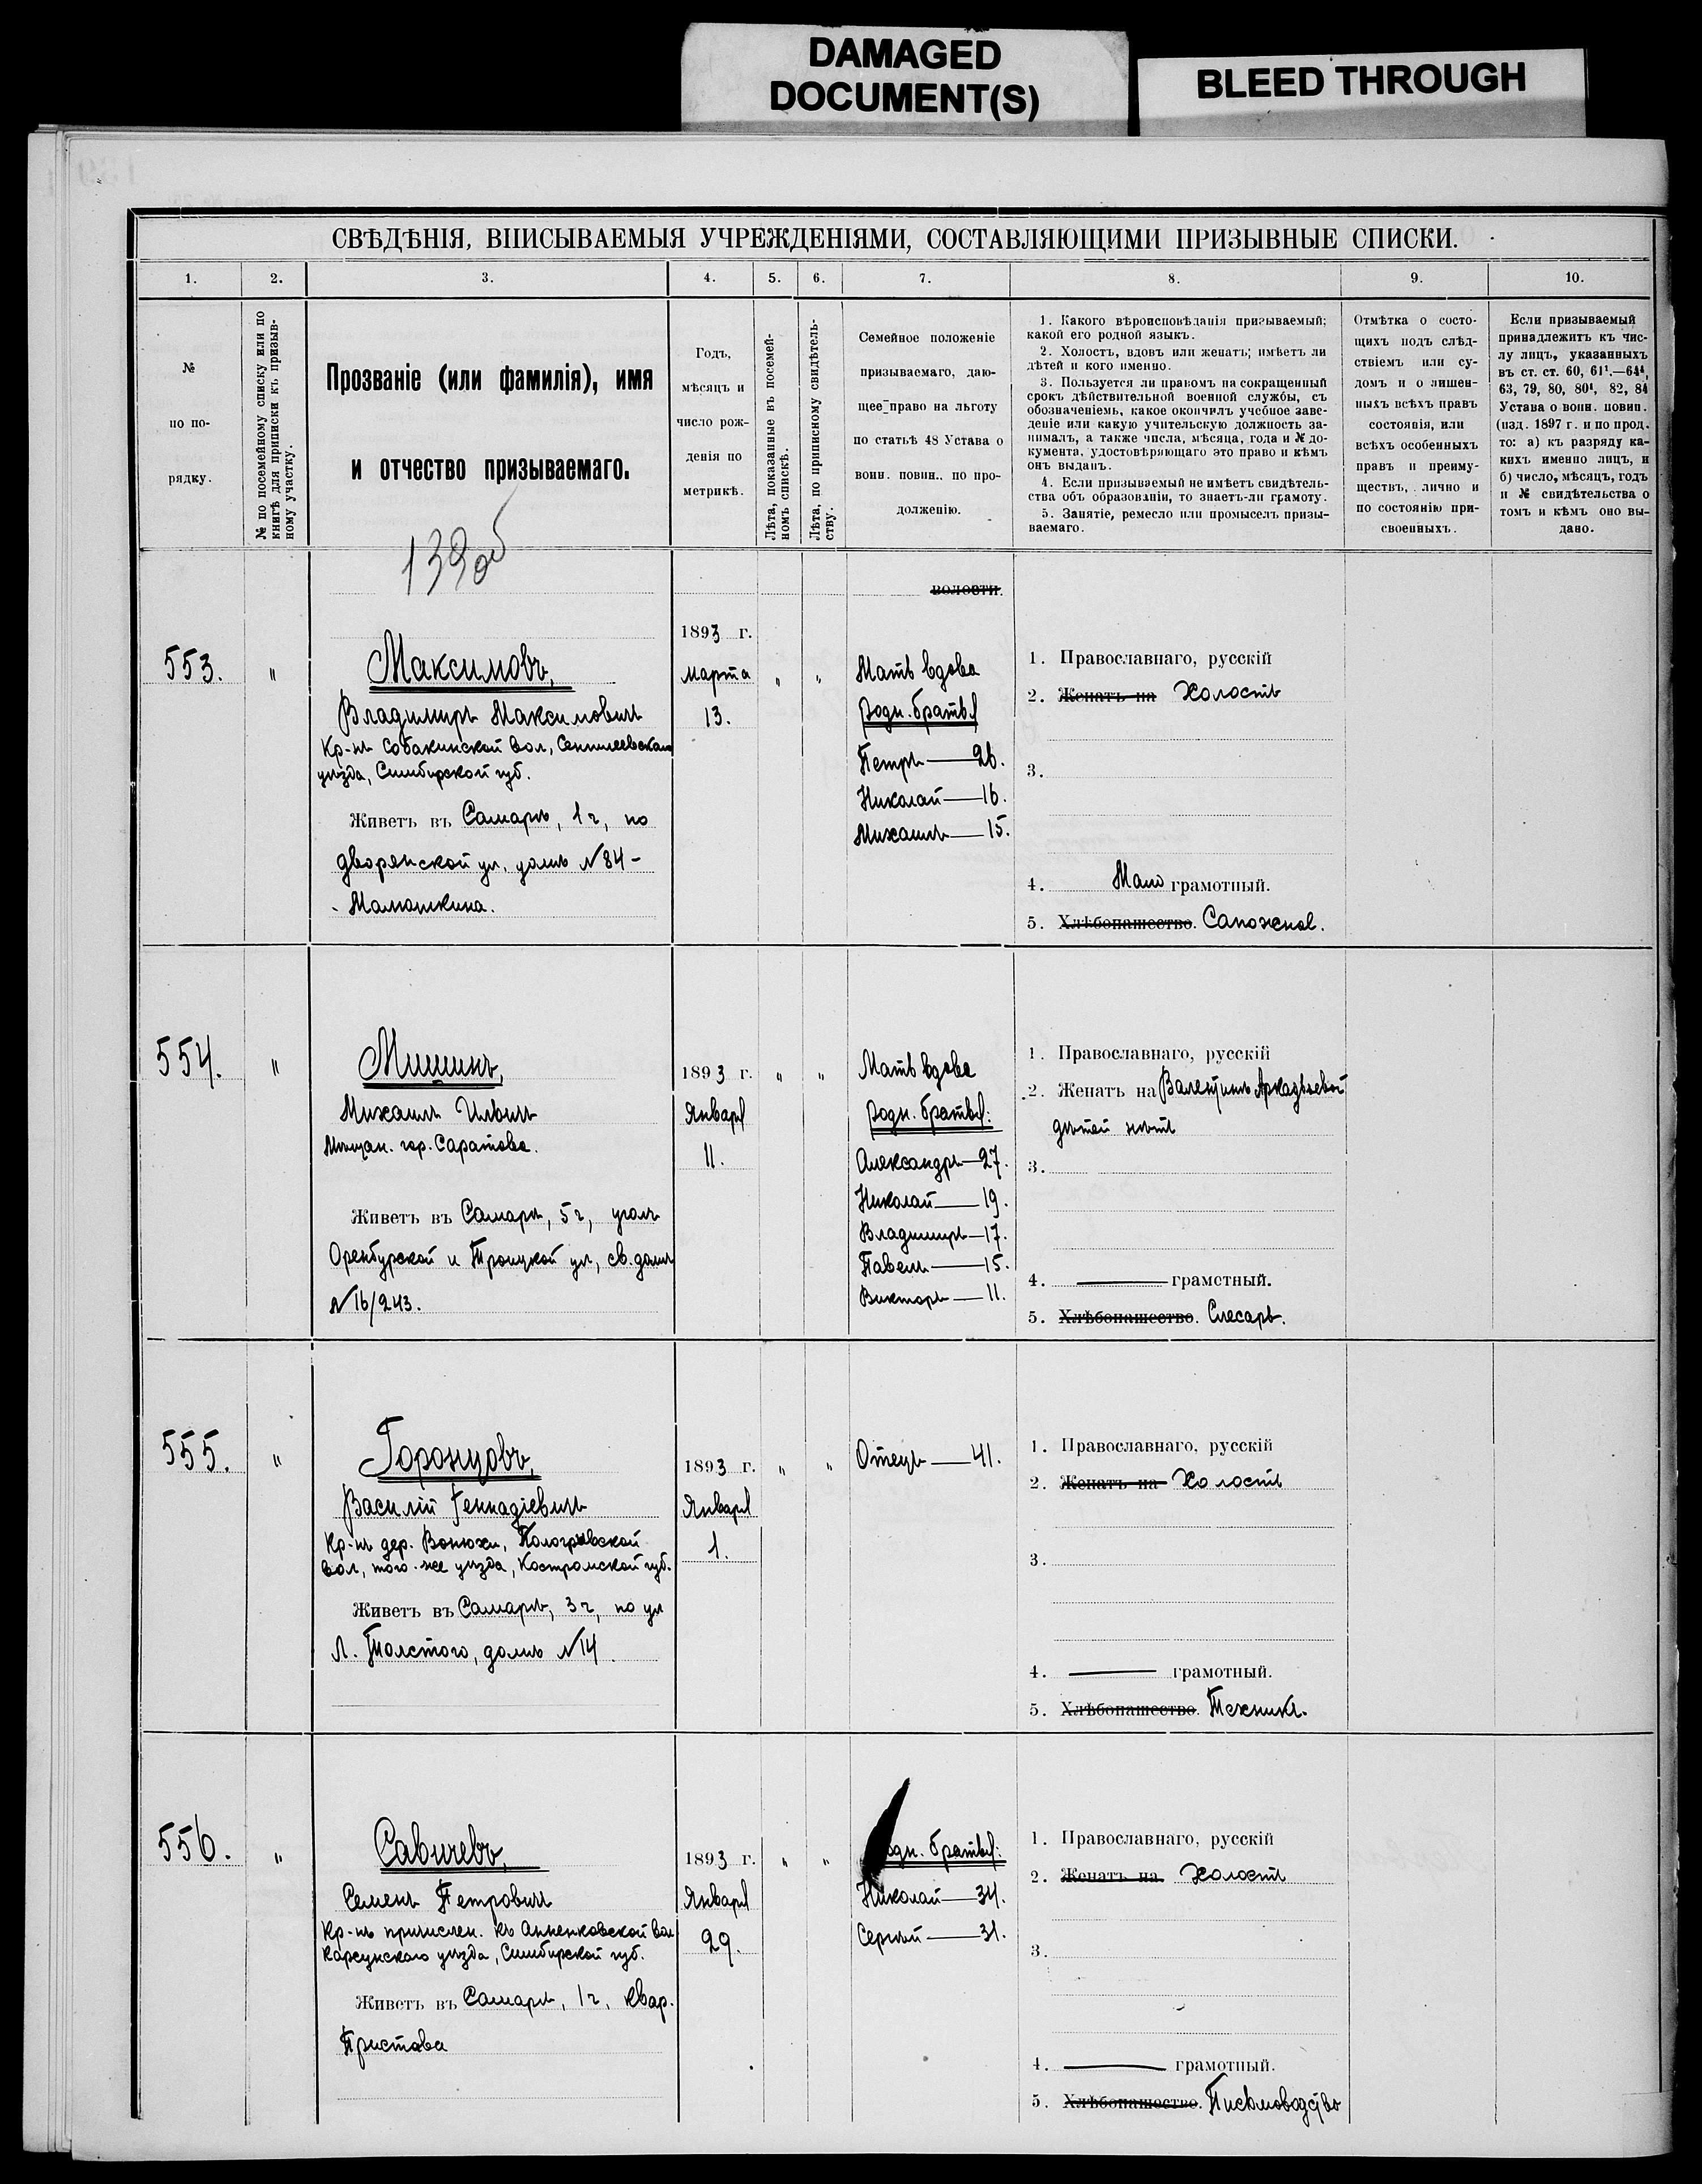 DAMAGED
DOCUMENT(S)
BLEED THROUGH
СВѢДѢНІЯ, ВПИСЫВАЕМЫЯ УЧРЕЖДЕНІЯМИ, СОСТАВЛЯЮЩИМИ ПРИЗЫВНЫЕ СПИСКИ.
1. 2. 3. 4. 5. 6. 7. 8. 9. 10.
№
по по-
рядку.
№ по посемейному списку или по
книгѣ для приписки къ призыв-
ному участку.
Прозваніе (или фамилія), имя
и отчество призываемаго.
Годъ,
мѣсяцъ и
число рож-
денія по
метрикѣ.
Лѣта, показанные въ посемей-
номъ спискѣ.
Лѣта, по приписному свидѣтель-
ству.
Семейное положеніе
призываемаго, даю-
щее право на льготу
по статьѣ 48 Устава о
воин. повин.. по про-
долженію.
1. Какого вѣроисповѣданія призываемый;
какой его родной языкъ.
2. Холостъ, вдовъ или женатъ; имѣетъ ли
дѣтей и кого именно.
3. Пользуется ли правомъ на сокращенный
срокъ дѣйствительной военной службы, съ
обозначеніемъ, какое окончилъ учебное заве-
деніе или какую учительскую должность за-
нималъ, а также числа, мѣсяца, года и № до-
кумента, удостовѣряющаго это право и кѣмъ
онъ выданъ.
4. Если призываемый не имѣетъ свидѣтель-
ства объ образованіи, то знаетъ-ли грамоту.
5. Занятіе, ремесло или промыселъ призы-
ваемаго.
Отмѣтка о состо-
щихъ подъ слѣд-
ствіемъ или су-
домъ и о лишен-
ныхъ всѣхъ правъ
состоянія, или
всѣхъ особенныхъ
правъ и преиму-
ществъ, лично и
по состоянію при-
своенныхъ.
Если призываемый
принадлежитъ къ чис-
лу лицъ, указанныхъ
въ ст. ст. 60, 61¹.—64⁴,
63, 79, 80, 80¹, 82, 84
Устава о воин. повин.
(изд. 1897 г. и по прод.
то: а) къ разряду ка-
кихъ именно лицъ, и
б) число, мѣсяцъ, годъ
и № свидѣтельства о
томъ и кѣмъ оно вы-
дано.
139 об
волости.
553. "
Максимовъ,
Владимиръ Максимовичъ
Кр-нъ Собакинской вол, Сенгилеевскаго
уѣзда, Симбирской губ.
Живетъ въ Самарѣ, 1ч, по
дворянской ул. домъ №84-
- Мамошкина.
1893 г.
Марта
13.
" "
Мать вдова
Родн. братья
Петръ—26.
Николай—16.
Михаилъ—15.
1. Православнаго, русскій
2. Женатъ на Холостъ
3.
4. Мало грамотный.
5. Хлѣбопашество. Сапожнов.
554. "
Мишинъ,
Михаилъ Ильичъ
Мѣщан. гор. Саратова.
Живетъ въ Самарѣ, 5ч, уголъ
Оренбурской и Троицкой ул, св. домъ
№16/243.
1893 г.
Января
11.
" "
Мать вдова
родн. братья:
Александръ—27.
Николай—19.
Владимиръ—17.
Павелъ—15.
Викторъ—11.
1. Православнаго, русскій
2. Женатъ на Валентинѣ Аркадьевой
дѣтей нѣтъ
3.
4. — грамотный.
5. Хлѣбопашество. Слесарь.
555. "
Горонцовъ,
Василій Геннадіевичъ
Кр-нъ дер. Вонюхи, Кологривской
вол, того-же уѣзда, Костромской губ.
Живетъ въ Самарѣ, 3ч, по ул
Л. Толстого, домъ №14.
1893 г.
Января
1.
" "
Отецъ—41.
1. Православнаго, русскій
2. Женатъ на Холостъ
3.
4. — грамотный.
5. Хлѣбопашество. Техникъ.
556. "
Савичевъ,
Семенъ Петровичъ
Кр-нъ причислен. къ Анненковской вол
Карсунскаго уѣзда, Симбирской губ.
Живетъ въ Самарѣ, 1ч, квар.
Пристава
1893 г.
Января
29.
" "
одн. братья:
Николай—34.
Сергѣй—31.
1. Православнаго, русскій
2. Женатъ на Холостъ
3.
4. — грамотный.
5. Хлѣбопашество. Письмоводство